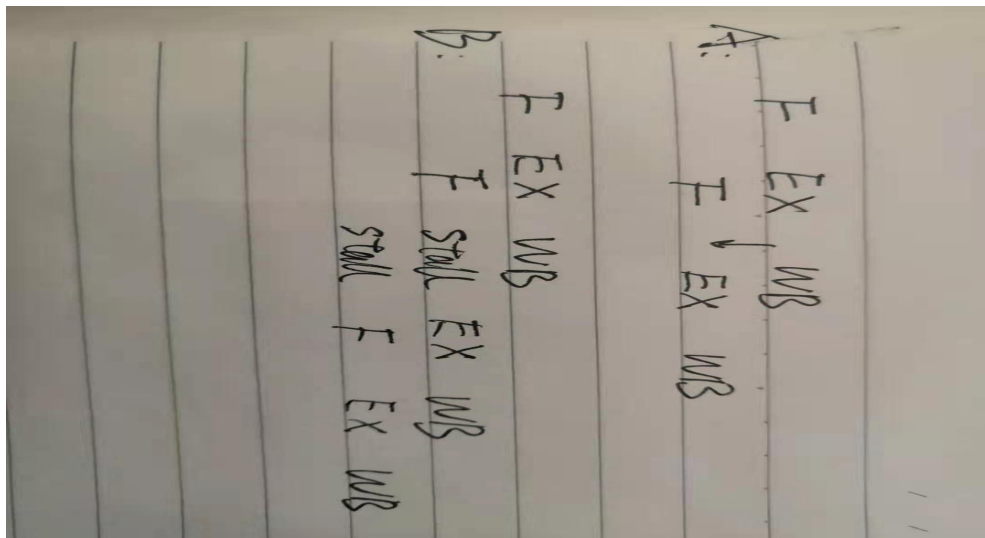 A:
F EX WB
F ← EX WB
B:
F EX WB
F Stall EX WB
Stall F EX WB